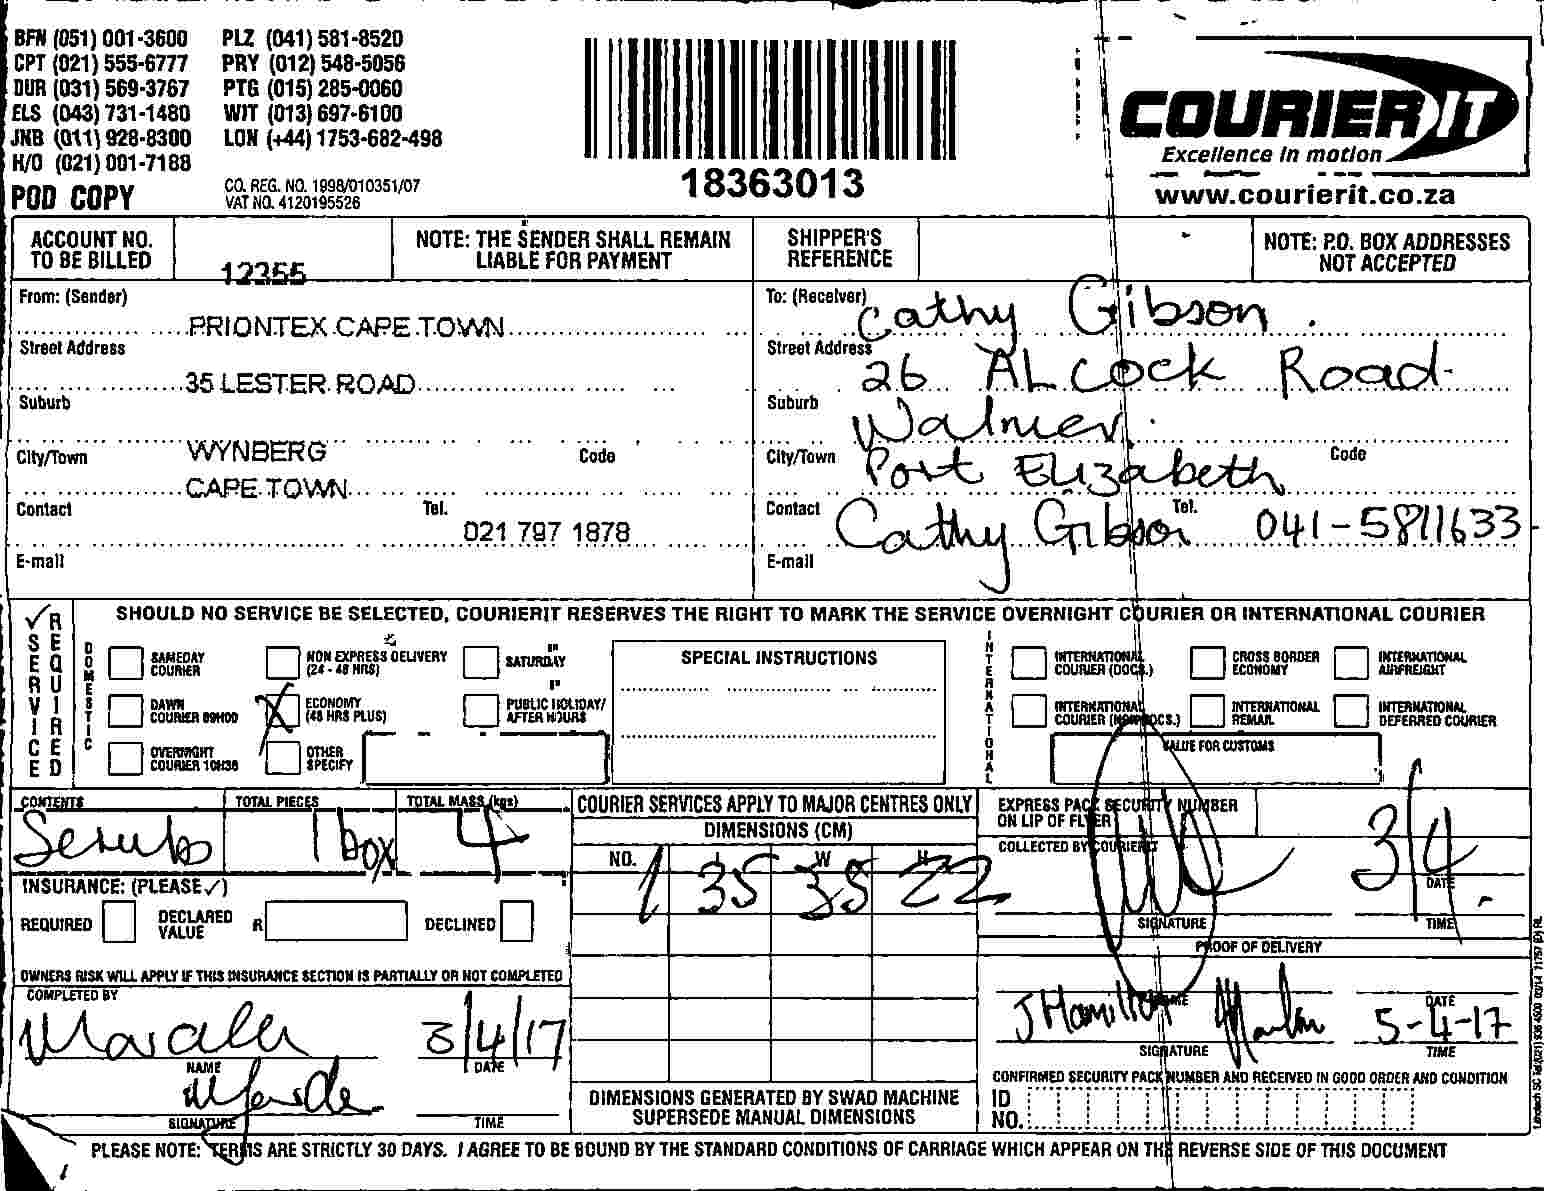 BFN (051) 001-3600 PLZ (041) 581-8520
CPT (021) 555-6777 PRY (012) 548-5056
DUR (031) 569-3767 PTG (015) 285-0060
ELS (043) 731-1480 WIT (013) 697-6100
JNB (011) 928-8300 LON (+44) 1753-682-498
H/O (021) 001-7188
POD COPY
CO. REG. NO. 1998/010351/07
VAT NO. 4120195526
18363013
COURIER IT
Excellence in motion
www.courierit.co.za
ACCOUNT NO. TO BE BILLED 12355
NOTE: THE SENDER SHALL REMAIN LIABLE FOR PAYMENT
SHIPPER'S REFERENCE
NOTE: P.O. BOX ADDRESSES NOT ACCEPTED
From: (Sender) PRIONTEX CAPE TOWN
Street Address 35 LESTER ROAD
Suburb WYNBERG
City/Town CAPE TOWN Code
Contact Tel. 021 797 1878
E-mail
To: (Receiver) Cathy Gibson.
Street Address 26 ALCock Road
Suburb Walmer.
City/Town Port Elizabeth Code
Contact Cathy Gibson Tel. 041-5811633
E-mail
SERVICE REQUIRED
SHOULD NO SERVICE BE SELECTED, COURIERIT RESERVES THE RIGHT TO MARK THE SERVICE OVERNIGHT COURIER OR INTERNATIONAL COURIER
DOMESTIC
SAMEDAY COURIER
NON EXPRESS DELIVERY (24 - 48 HRS)
SATURDAY
DAWN COURIER 09H00
X ECONOMY (48 HRS PLUS)
PUBLIC HOLIDAY/ AFTER HOURS
OVERNIGHT COURIER 10H30
OTHER SPECIFY
SPECIAL INSTRUCTIONS
INTERNATIONAL
INTERNATIONAL COURIER (DOCS.)
CROSS BORDER ECONOMY
INTERNATIONAL AIRFREIGHT
INTERNATIONAL COURIER (NON DOCS.)
INTERNATIONAL REMAIL
INTERNATIONAL DEFERRED COURIER
VALUE FOR CUSTOMS
CONTENTS Scrubs
TOTAL PIECES 1 box
TOTAL MASS (kgs) 4
COURIER SERVICES APPLY TO MAJOR CENTRES ONLY
DIMENSIONS (CM)
NO. L W H
1 35 35 22
DIMENSIONS GENERATED BY SWAD MACHINE
SUPERSEDE MANUAL DIMENSIONS
EXPRESS PACK SECURITY NUMBER
ON LIP OF FLYER
COLLECTED BY COURIERIT
3/4
DATE
SIGNATURE TIME
INSURANCE: (PLEASE ✓)
REQUIRED
DECLARED VALUE R
DECLINED
OWNERS RISK WILL APPLY IF THIS INSURANCE SECTION IS PARTIALLY OR NOT COMPLETED
COMPLETED BY
3/4/17
NAME DATE
SIGNATURE TIME
PROOF OF DELIVERY
J Hamilton
NAME DATE
5-4-17
SIGNATURE TIME
CONFIRMED SECURITY PACK NUMBER AND RECEIVED IN GOOD ORDER AND CONDITION
ID NO.
PLEASE NOTE: TERMS ARE STRICTLY 30 DAYS. I AGREE TO BE BOUND BY THE STANDARD CONDITIONS OF CARRIAGE WHICH APPEAR ON THE REVERSE SIDE OF THIS DOCUMENT